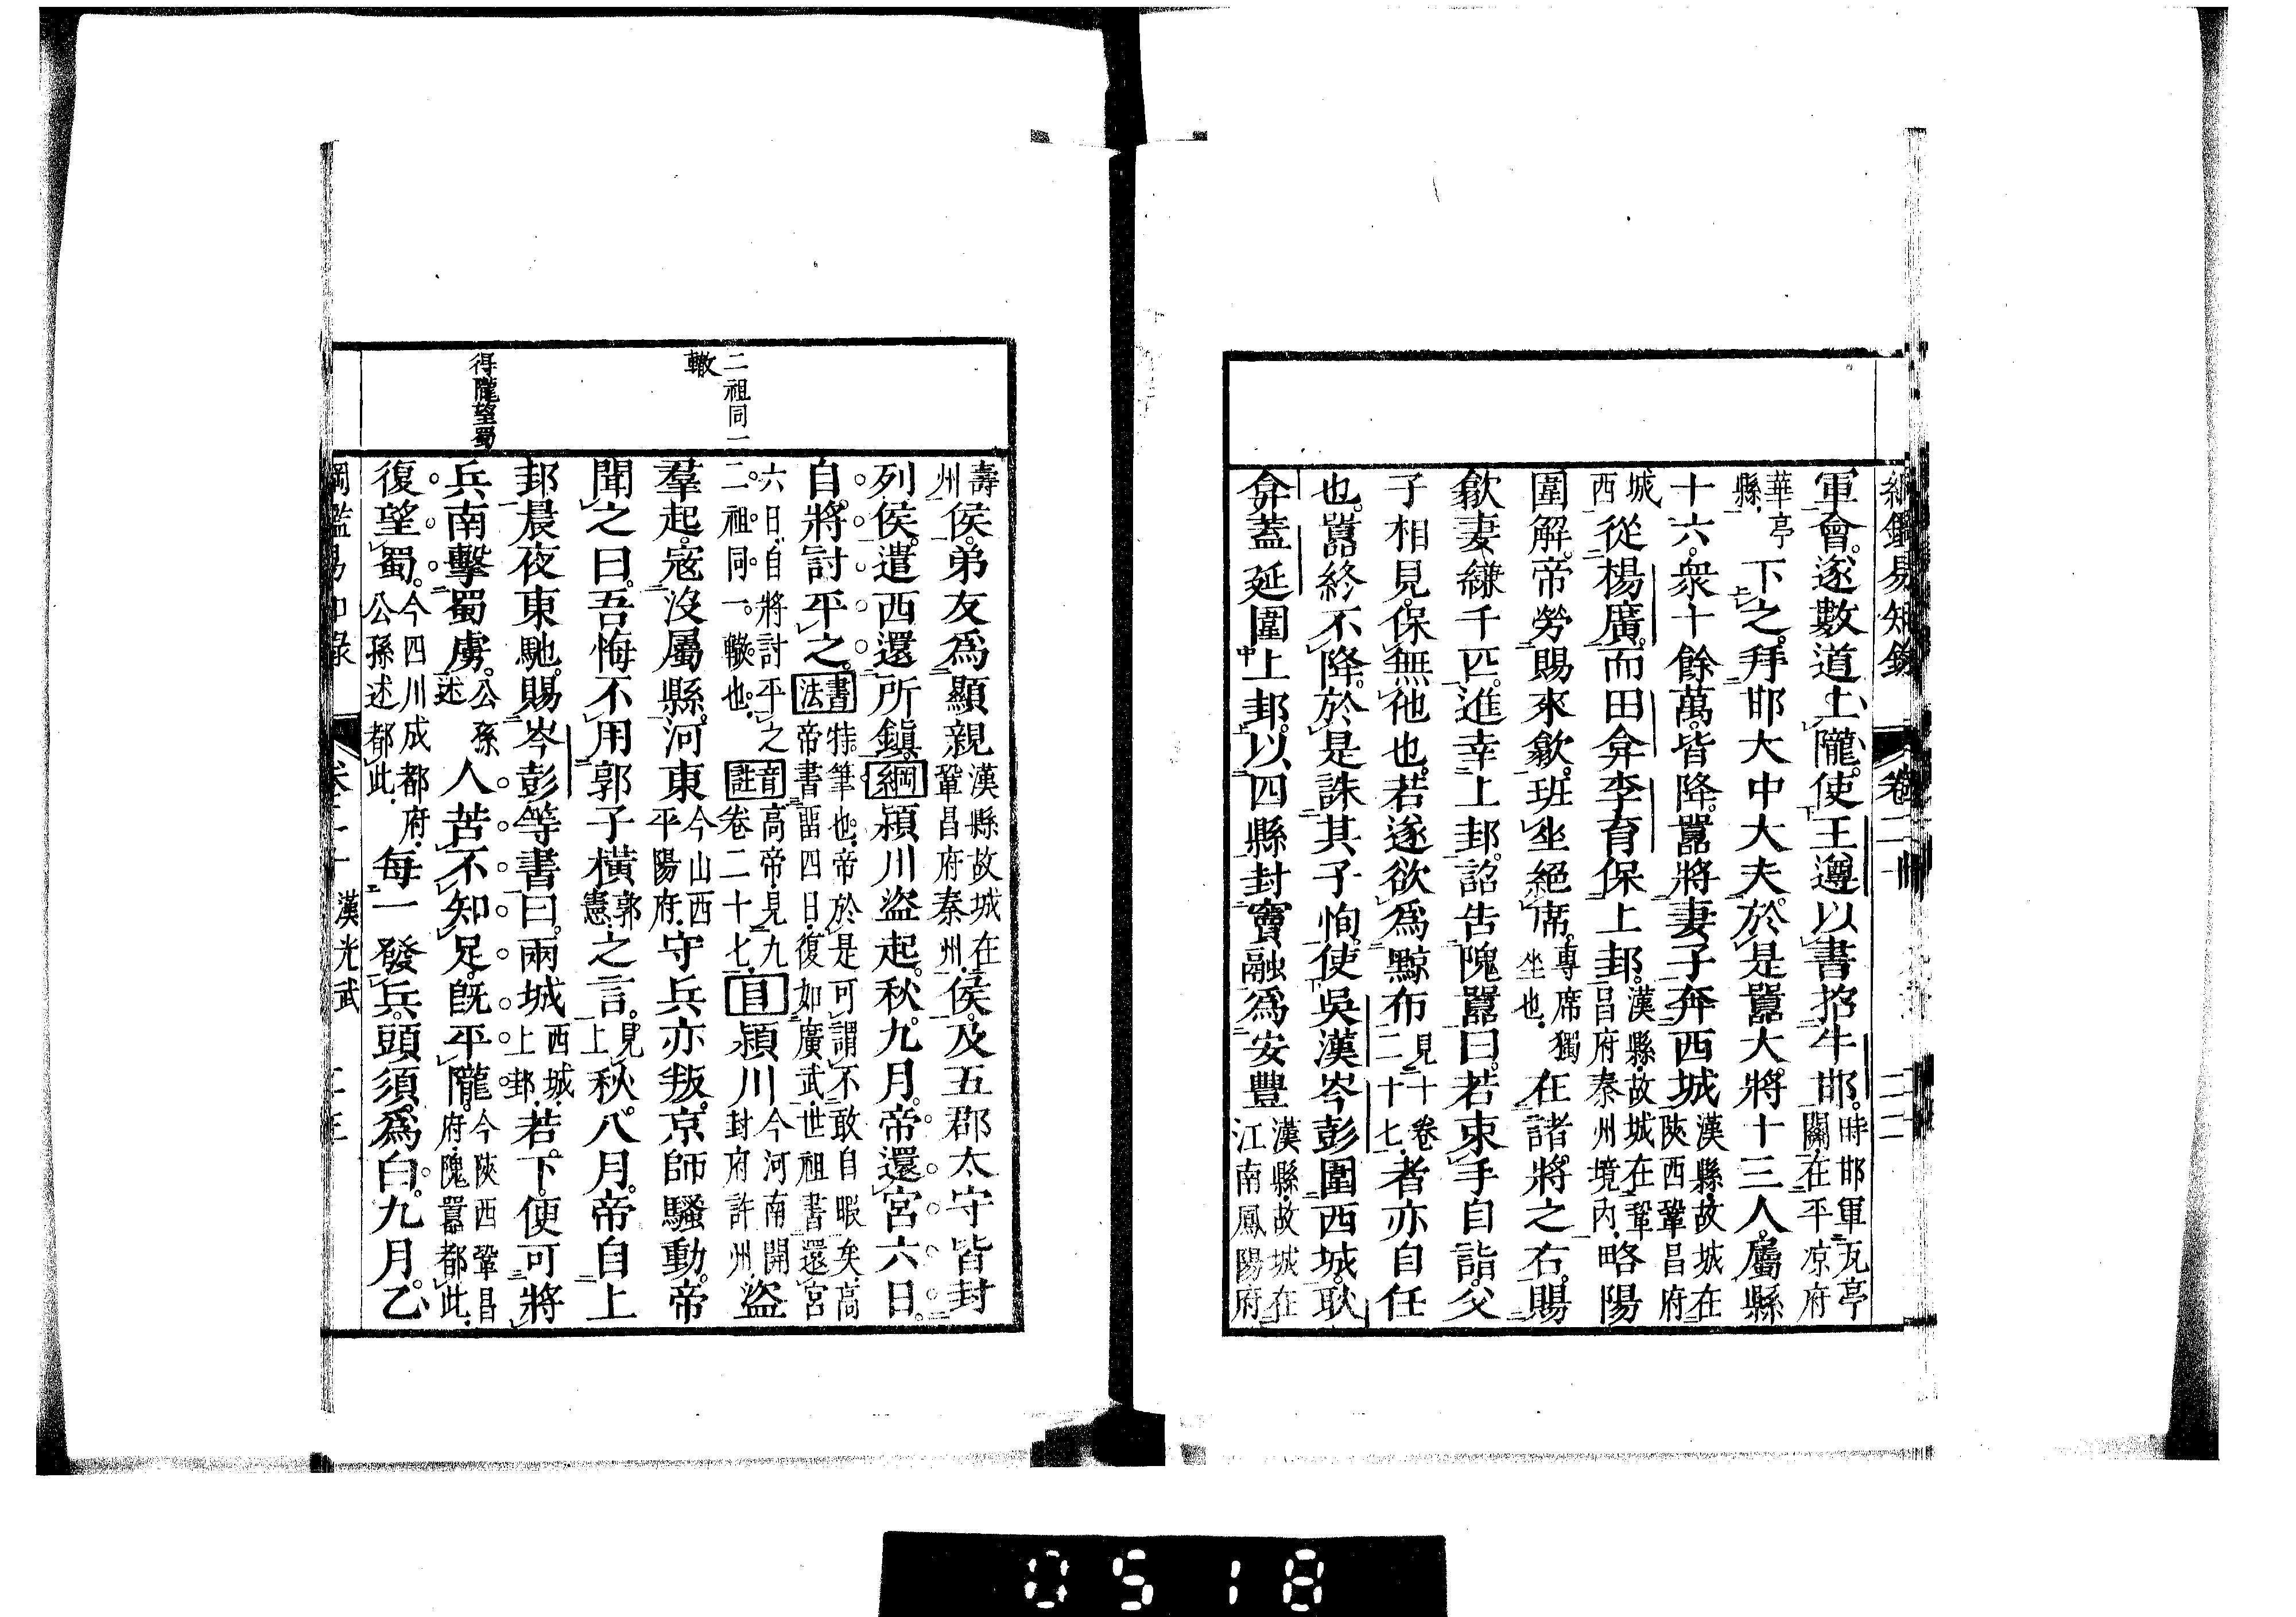 綱鑑易知錄 卷二十 二二
軍會。遂數道上隴。使王遵以書招牛邯。時邯軍瓦亭關。在平凉府
華亭縣。下之。拜邯大中大夫。於是囂大將十三人。屬縣
十六。衆十餘萬。皆降。囂將妻子奔西城漢縣。故城在陝西鞏昌府
城西從楊廣。而田弇李育保上邽。漢縣。故城在鞏昌府秦州境內。略陽
圍解。帝勞賜來歙。班坐絕席。專席獨坐也。在諸將之右。賜
歙妻縑千匹。進幸上邽。詔告隗囂曰。若束手自詣。父
子相見。保無他也。若遂欲爲黥布見十卷二十七。者亦自任
也。囂終不降。於是誅其子恂。使吳漢岑彭圍西城。耿
弇蓋延圍上邽。以四縣封竇融爲安豐漢縣。故城在江南鳳陽府
壽州侯。弟友爲顯親漢縣故城在鞏昌府秦州。侯。及五郡太守皆封
列侯。遣西還所鎮。綱潁川盜起。秋。九月。帝還宮六日。
自將討平之。書法特筆也。帝於是可謂不敢自暇矣。高帝書畱四日。復如廣武。世祖書還宮
六日。自將討平之二祖同一轍也。音註高帝。見九卷二十七。目潁川今河南開封府許州。盜
羣起。寇沒屬縣。河東今山西平陽府。守兵亦叛。京師騷動。帝
聞之曰。吾悔不用郭子橫郭憲。之言。見上秋。八月。帝自上
邽晨夜東馳。賜岑彭等書曰。兩城西城。上邽。若下。便可將
兵南擊蜀虜。公孫述人苦不知足。旣平隴。今陝西鞏昌府。隗囂都此。
復望蜀。今四川成都府。公孫述都此。每一發兵。頭須爲白。九月。乙
綱鑑易知錄 卷二十 漢光武
二祖同一轍
得隴望蜀
0518